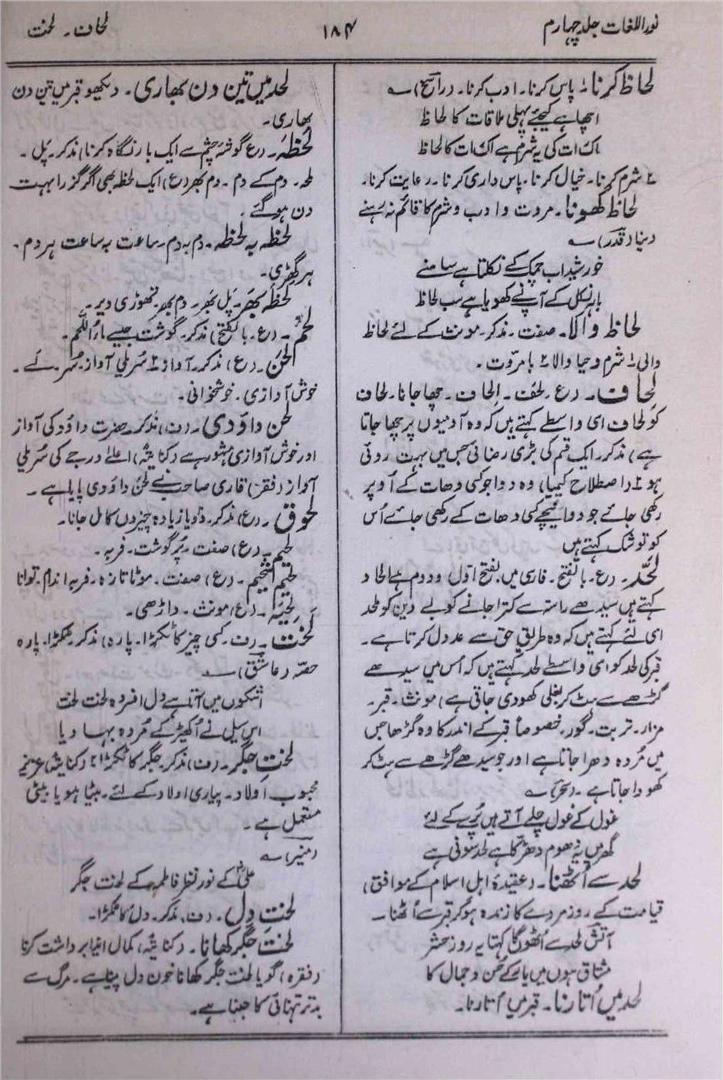 نور اللغات جلد چہارم
۱۸۴
لحاف۔ لخت
لحاظ کرنا ۱ پاس کرنا۔ ادب کرنا۔ (راسخ) ؎
اچھا ہے کیجئے پہلی ملاقات کا لحاظ
اک رات کی یہ شرم ہے اک رات کا لحاظ
۲ شرم کرنا۔ خیال کرنا۔ پاس داری کرنا۔ رعایت کرنا۔
لحاظ کھونا۔ مروت و ادب و شرم کا قائم نہ رہنے
دینا (قدر) ؎
خورشید اب چمک کے نکلتا ہے سامنے
باہر نکل کے آپ نے کھویا ہے سب لحاظ
لحاظ والا۔ صفت۔ مذکر۔ مونث کے لئے لحاظ
والی ۱ شرم و حیا والا ۲ با مروت۔
لحاف۔ (ع۔ لحف۔ الحاف۔ چھا جانا۔ لحاف
کو لحاف اسی واسطے کہتے ہیں کہ وہ آدمیوں پر چھا جاتا
ہے) مذکر۔ ایک قسم کی بڑی رضائی جس میں بہت روئی
ہو ۲ (اصطلاح کیمیا) وہ دوا جو کسی دھات کے اوپر
رکھی جائے جو دوا نیچے کسی دھات کے رکھی جائے اُس
کو توشک کہتے ہیں
لحد۔ (ع۔ بالفتح۔ فارسی میں بفتح اوّل و دوم ہے الحاد
کہتے ہیں سیدھے راستہ سے کترا جانے کو بے دین کو ملحد
اسی لئے کہتے ہیں کہ وہ طریق حق سے عدول کرتا ہے۔
قبر کی لحد کو اسی واسطے لحد کہتے ہیں کہ اُس میں سیدھے
گڑھے سے ہٹ کر بغلی کھودی جاتی ہے) مونث۔ قبر۔
مزار۔ تربت۔ گور۔ خصوصاً قبر کے اندر کا وہ گڑھا جس
میں مُردہ دھرا جاتا ہے اور جو سیدھے گڑھے سے ہٹ کر
کھودا جاتا ہے۔
غول کے غول چلے آتے ہیں پُرسے کے لئے
گھر میں یہ دھوم دھڑکا ہے لحد سونی ہے
لحد سے اُٹھنا۔ (عقیدۂ اہل اسلام کے موافق)
قیامت کے روز مردے کا زندہ ہو کر قبر سے اُٹھنا۔
آتش لحد سے اُٹھوں گا کہتا یہ روز حشر
مشتاق ہوں میں یار کے حسن و جمال کا
لحد میں اُتارنا۔ قبر میں اُتارنا۔
لحد میں تین دن بھاری۔ دیکھو قبر میں تین دن
بھاری۔
لحظہ۔ (ع گوشۂ چشم سے ایک بار نگاہ کرنا) مذکر۔ پل۔
لمحہ۔ دم کے دم۔ دم بھر (ع) ایک لحظہ بھی اگر گزرا بہت
دن ہو گئے۔
لحظہ بہ لحظہ۔ دم بہ دم۔ ساعت بہ ساعت ہر دم۔
ہر گھڑی۔
لحظہ بھر۔ پل بھر۔ دم بھر تھوڑی دیر۔
لحم۔ (ع۔ بالفتح) مذکر۔ گوشت جیسے ماء اللحم۔
لحن۔ (ع) مذکر۔ آواز ۲ سُریلی آواز۔ سُر۔ لَے۔
خوش آوازی۔ خوشخوانی۔
لحن داؤدی۔ (ف) مذکر۔ حضرت داؤد کی آواز
اور خوش آوازی مشہور ہے (کنایتہً) اعلےٰ درجے کی سُریلی
آواز (فقرہ) قاری صاحب نے لحن داؤدی پایا ہے۔
لحوق۔ (ع) مذکر۔ دو یا زیادہ چیزوں کا مل جانا۔
لحیم۔ (ع) صفت۔ پُر گوشت۔ فربہ۔
لحیم شحیم۔ (ع) صفت۔ موٹا تازہ۔ فربہ اندام۔ توانا
لحیہ۔ (ع) مونث۔ داڑھی۔
لخت۔ (ف۔ کسی چیز کا ٹکڑا۔ پارہ) مذکر۔ ٹکڑا۔ پارہ
حصّہ (عاشق) ؎
اشکوں میں آتا ہے دل افسردہ لخت لخت
اس سیل نے اُکھیڑ کے مُردہ بہا دیا
لختِ جگر۔ (ف) مذکر۔ جگر کا ٹکڑا ۲ (کنایتہً) عزیز
محبوب اولاد۔ پیاری اولاد کے لئے۔ بیٹا ہو یا بیٹی
مستعمل ہے۔
(منیر) ؎
علیؓ کے نور نظر فاطمہؓ کے لخت جگر
لختِ دل۔ (ف) مذکر۔ دل کا ٹکڑا۔
لخت جگر کھانا۔ (کنایتہً) کمال ایذا برداشت کرنا
(فقرہ) گویا لخت جگر کھانا خون دل پینا ہے۔ مرگ سے
بدتر تنہائی کا جینا ہے۔